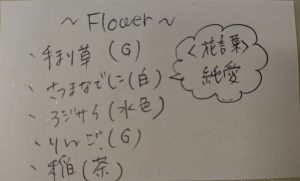 ～Flower～
、手まり草 (G)
、さつまなでしこ(白)
、アジサイ(水色)
、りんご(G)
、稲(茶)
<花言葉>
純愛